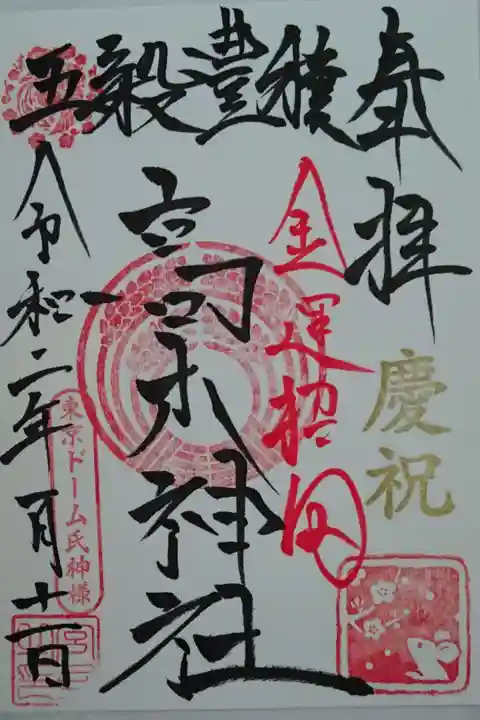 奉拝
慶祝
五穀豊穣
金運招福
高木神社
東京ドーム氏神様
令和二年一月十二日